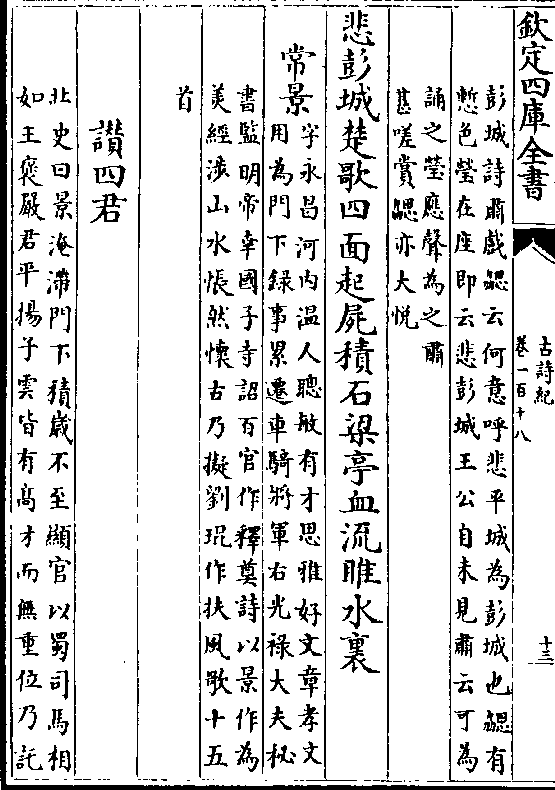 欽定四庫全書
古詩紀
卷一百十八
十三
彭城詩肅戲勰云何意呼悲平城為彭城也勰有
慙色瑩在座即云悲彭城王公自未見肅云可為
誦之瑩應聲為之肅
甚嗟賞勰亦大悦
悲彭城楚歌四面起屍積石梁亭血流睢水裏
常景
字永昌河内温人聰敏有才思雅好文章孝文
用為門下録事累遷車騎將軍右光禄大夫秘
書監明帝幸國子寺詔百官作釋奠詩以景作為
美經涉山水悵然懷古乃擬劉琨作扶風歌十五
首
讚四君
北史曰景淹滯門下積歲不至顯官以蜀司馬相
如王褒嚴君平揚子雲皆有高才而無重位乃託